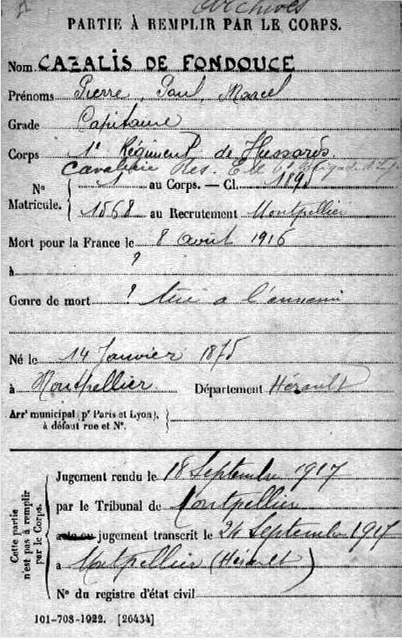 Archives
PARTIE À REMPLIR PAR LE CORPS.
Nom CAZALIS DE FONDOUCE
Prénoms Pierre, Paul, Marcel
Grade Capitaine
Corps 1e Régiment de Hussards
Cavalerie
No 1 au Corps. — Cl. 1895
Matricule. 1568 au Recrutement Montpellier
Mort pour la France le 8 août 1916
à ?
Genre de mort ? tué à l'ennemi
Né le 14 Janvier 1875
à Montpellier Département Hérault
Arrt municipal (pr Paris et Lyon),
à défaut rue et No.
Cette partie
n'est pas à remplir
par le Corps.
Jugement rendu le 18 Septembre 1917
par le Tribunal de Montpellier
acte ou jugement transcrit le 24 Septembre 1917
à Montpellier (Hérault)
No du registre d'état civil
101-708-1922. [26434]